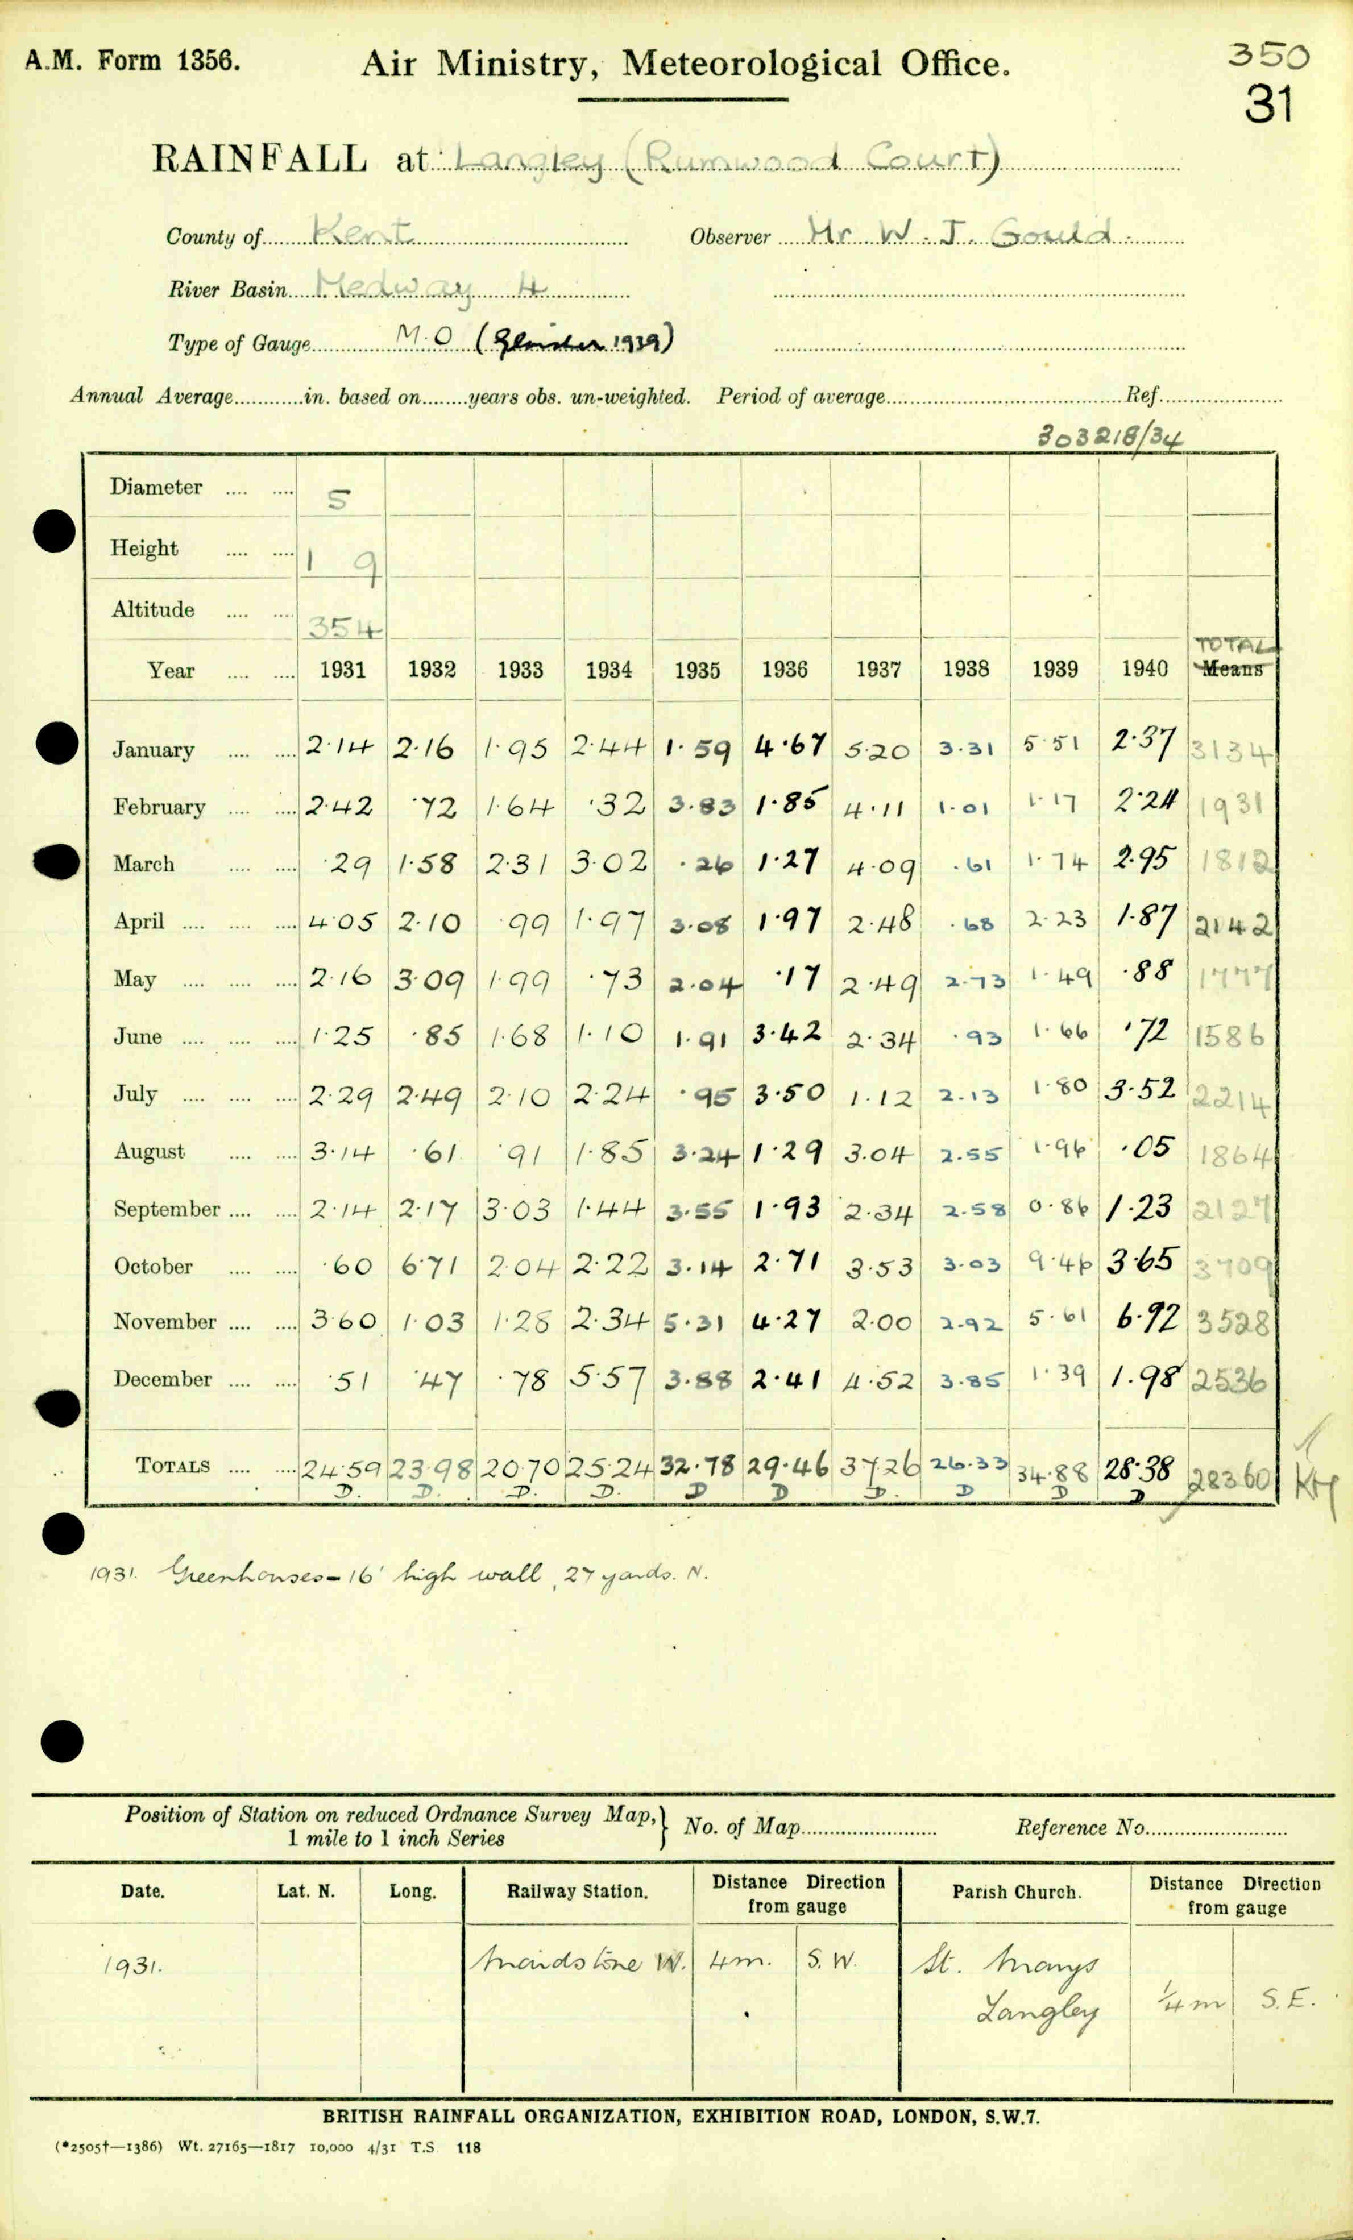 A.M. Form 1356.
Air Ministry, Meteorological Office.
350
31
RAINFALL at Langley (Rumwood Court)
County of Kent Observer Mr W. J. Gould.
River Basin Medway 4
Type of Gauge M.O (Glaisher 1939)
Annual Average in. based on years obs. un-weighted. Period of average Ref.
303218/34
Diameter 5
Height 1 9
Altitude 354
TOTAL
Year 1931 1932 1933 1934 1935 1936 1937 1938 1939 1940 Means
January 2·14 2·16 1·95 2·44 1·59 4·67 5·20 3·31 5·51 2·37 3134
February 2·42 ·72 1·64 ·32 3·83 1·85 4·11 1·01 1·17 2·24 1931
March ·29 1·58 2·31 3·02 ·26 1·27 4·09 ·61 1·74 2·95 1812
April 4·05 2·10 ·99 1·97 3·08 1·97 2·48 ·68 2·23 1·87 2142
May 2·16 3·09 1·99 ·73 2·04 ·17 2·49 2·73 1·49 ·88 1777
June 1·25 ·85 1·68 1·10 1·91 3·42 2·34 ·93 1·66 ·72 1586
July 2·29 2·49 2·10 2·24 ·95 3·50 1·12 2·13 1·80 3·52 2214
August 3·14 ·61 ·91 1·85 3·24 1·29 3·04 2·55 1·96 ·05 1864
September 2·14 2·17 3·03 1·44 3·55 1·93 2·34 2·58 0·86 1·23 2127
October ·60 6·71 2·04 2·22 3·14 2·71 3·53 3·03 9·46 3·65 3709
November 3·60 1·03 1·28 2·34 5·31 4·27 2·00 2·92 5·61 6·92 3528
December ·51 ·47 ·78 5·57 3·88 2·41 4·52 3·85 1·39 1·98 2536
TOTALS 24·59 23·98 20·70 25·24 32·78 29·46 37·26 26·33 34·88 28·38 28360 KH
D. D. D. D. D D D. D D D
1931. Greenhouses - 16' high wall, 27 yards. N.
Position of Station on reduced Ordnance Survey Map,
1 mile to 1 inch Series
No. of Map
Reference No.
Date. Lat. N. Long. Railway Station. Distance Direction from gauge Parish Church. Distance Direction from gauge
1931. Maidstone W. 4m. S.W. St. Marys
Langley ¼ m S.E.
BRITISH RAINFALL ORGANIZATION, EXHIBITION ROAD, LONDON, S.W.7.
(*2505†—1386) Wt. 27165—1817 10,000 4/31 T.S. 118